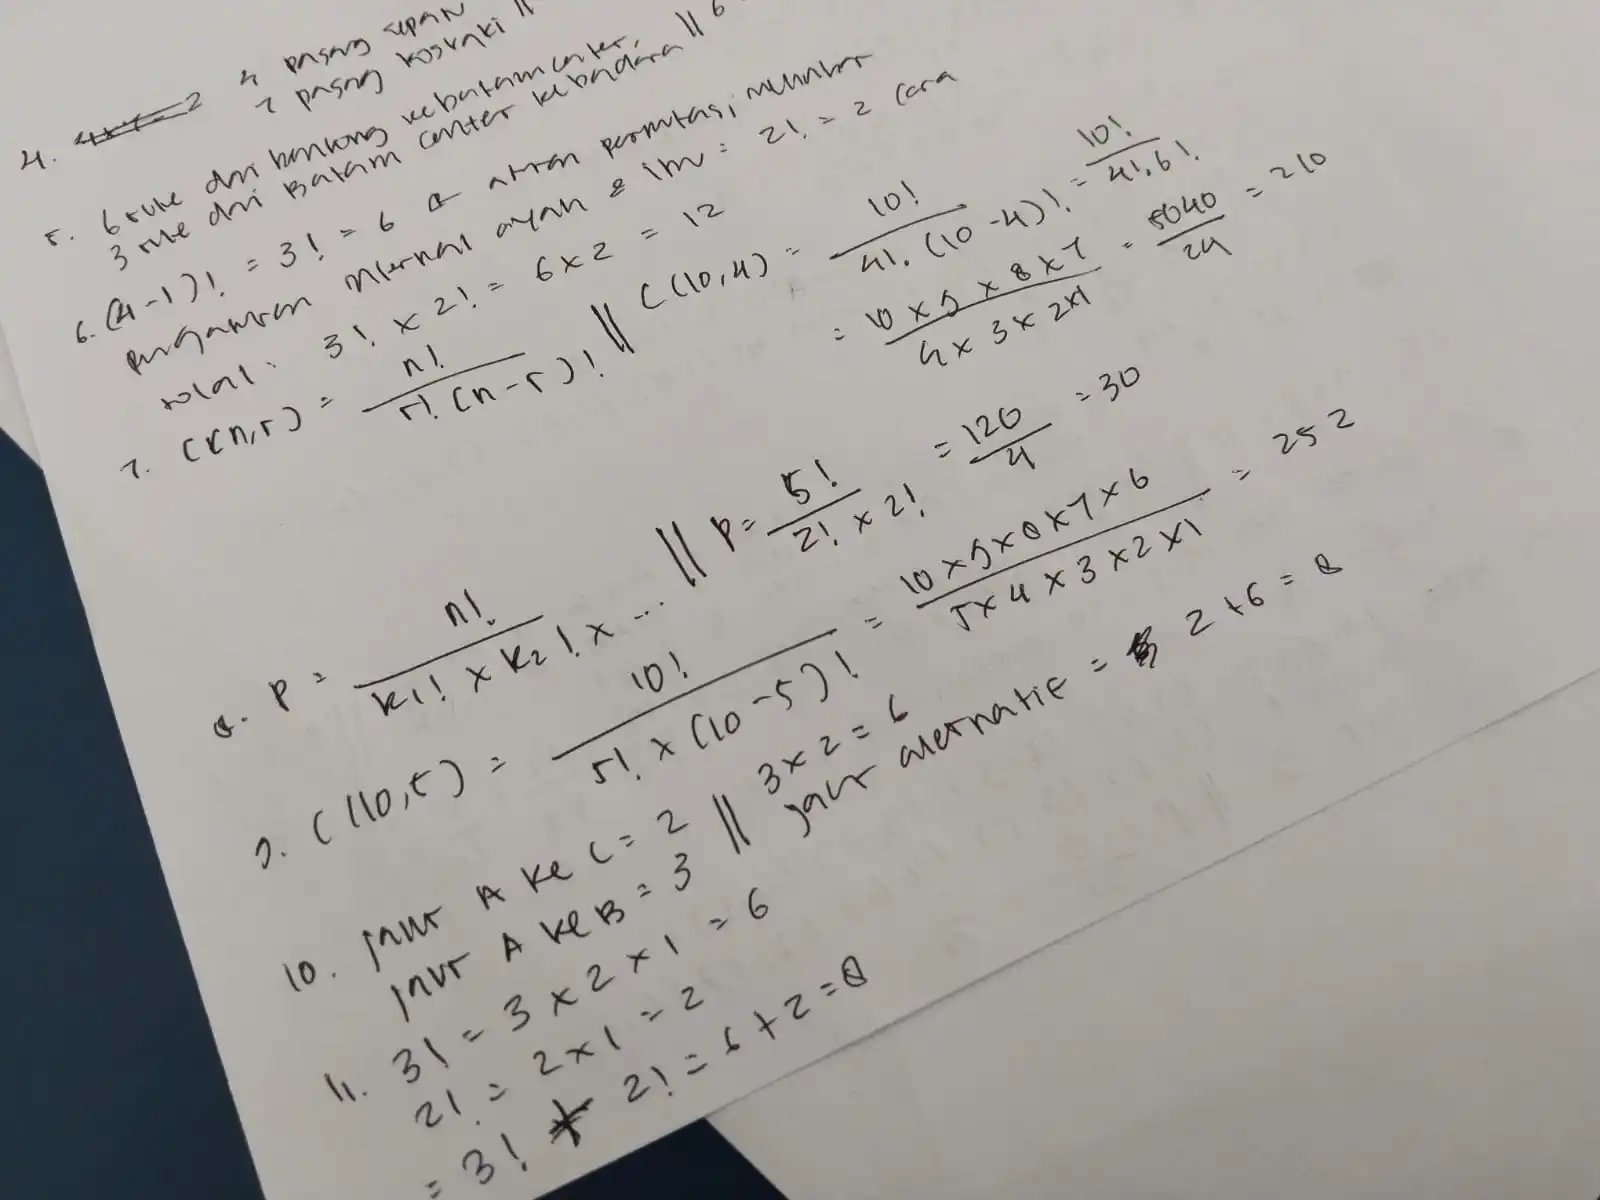 4. 4 pasang sepatu
2 pasang koskaki ||
5. 6 rute dari benkong kebatamcenter,
3 rute dari Batam center kebandara || 6
6. (4-1)! = 3! = 6 aturan permutasi, melingkar
pengaturan internal ayah & ibu : 2! = 2 cara
total : 3! x 2! = 6 x 2 = 12
7. C(n,r) = n! / r! (n-r)! || C(10,4) = 10! / 4!. (10-4)! = 10! / 4!.6!
= 10 x 9 x 8 x 7 / 4 x 3 x 2x1 = 5040 / 24 = 210
8. P = n! / k1! x k2! x ... || P = 5! / 2! x 2! = 120 / 4 = 30
9. C(10,5) = 10! / 5! x (10-5)! = 10 x 9 x 8 x 7 x 6 / 5 x 4 x 3 x 2 x 1 = 252
10. jalur A ke C = 2 || 3 x 2 = 6
jalur A ke B = 3 || jalur alternatif = 2 + 6 = 8
11. 3! = 3 x 2 x 1 = 6
2! = 2 x 1 = 2
= 3! + 2! = 6 + 2 = 8